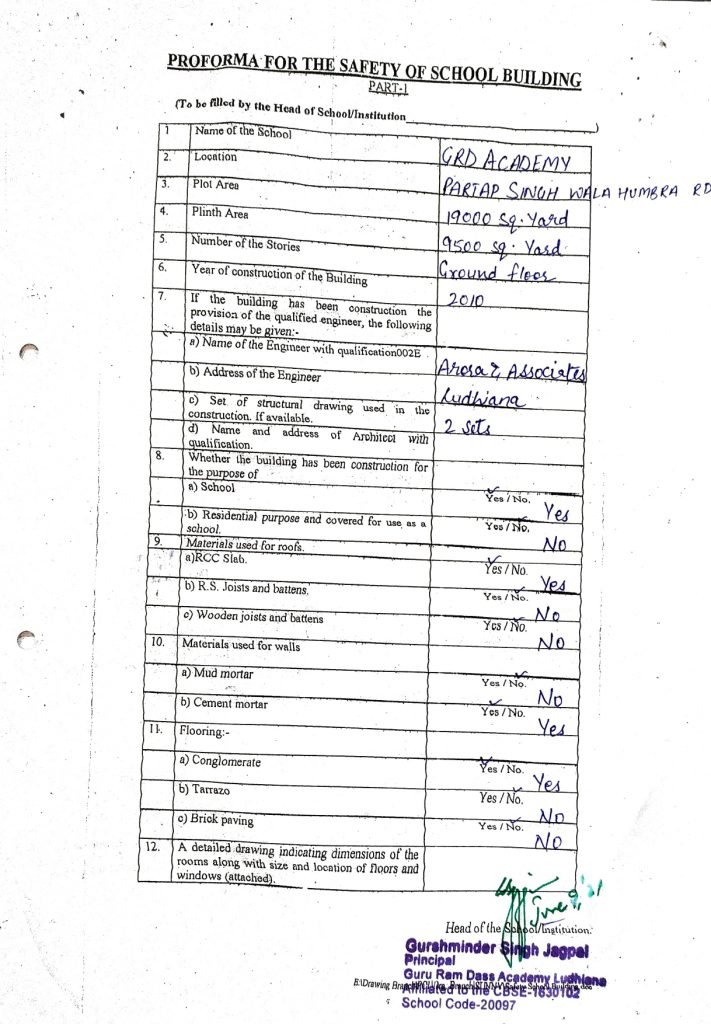 PROFORMA FOR THE SAFETY OF SCHOOL BUILDING
PART-1
(To be filled by the Head of School/Institution_____________________)
1 Name of the School GRD ACADEMY
2. Location PARTAP SINGH WALA HUMBRA RD
3. Plot Area 19000 Sq. Yard
4. Plinth Area 9500 Sq. Yard
5. Number of the Stories Ground floor
6. Year of construction of the Building 2010
7. If the building has been construction the
provision of the qualified engineer, the following
details may be given:-
a) Name of the Engineer with qualification002E Arora & Associates
b) Address of the Engineer Ludhiana
c) Set of structural drawing used in the
construction. If available. 2 Sets
d) Name and address of Architect with
qualification.
8. Whether the building has been construction for
the purpose of
a) School Yes / No. Yes
b) Residential purpose and covered for use as a
school. Yes / No. No
9. Materials used for roofs.
a)RCC Slab. Yes / No. Yes
b) R.S. Joists and battens. Yes / No. No
c) Wooden joists and battens Yes / No. No
10. Materials used for walls
a) Mud mortar Yes / No. No
b) Cement mortar Yes / No. Yes
11. Flooring:-
a) Conglomerate Yes / No. Yes
b) Tarrazo Yes / No. No
c) Brick paving Yes / No. No
12. A detailed drawing indicating dimensions of the
rooms along with size and location of floors and
windows (attached).
June 9, 21
Head of the School/Institution.
Gurshminder Singh Jagpal
Principal
Guru Ram Dass Academy Ludhiana
E:\Drawing
Affiliated to the CBSE-1630102
School Code-20097